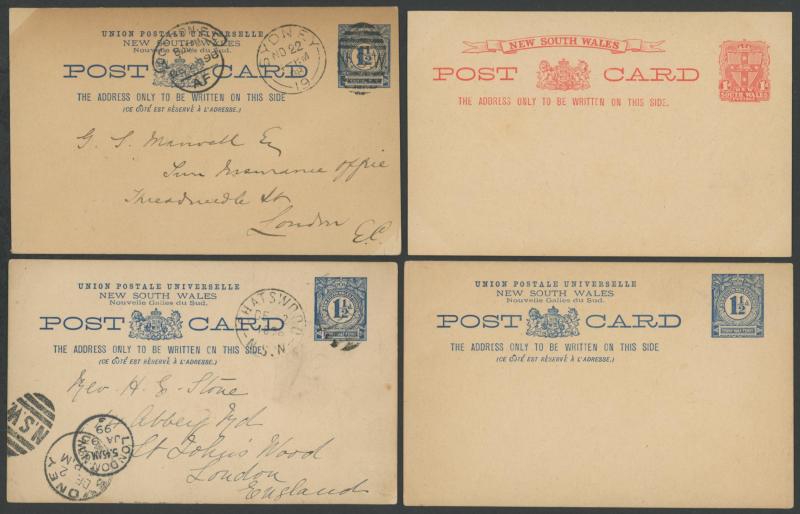 UNION POSTALE UNIVERSELLE
NEW SOUTH WALES
Nouvelle Galles du Sud.
POST CARD
THE ADDRESS ONLY TO BE WRITTEN ON THIS SIDE
(CE CÔTÉ EST RÉSERVÉ À L'ADRESSE.)
SYDNEY
NO 22
98
AF
1½
G. S. Manvell Esq
Sun Insurance Office
Threadneedle St
London
E.C.
NEW SOUTH WALES
POST CARD
THE ADDRESS ONLY TO BE WRITTEN ON THIS SIDE.
1d 1d
SOUTH WALES
UNION POSTALE UNIVERSELLE
NEW SOUTH WALES
Nouvelle Galles du Sud.
POST CARD
THE ADDRESS ONLY TO BE WRITTEN ON THIS SIDE
(CE CÔTÉ EST RÉSERVÉ À L'ADRESSE.)
1½
CHATSWOOD
DE
N.S.W
Rev H. E. Stone
Abbey Rd
St John's Wood
London
England
N.S.W.
LONDON N.W.
5.15AM
JA 9
99
SYDNEY
DE 2
UNION POSTALE UNIVERSELLE
NEW SOUTH WALES
Nouvelle Galles du Sud.
POST CARD
THE ADDRESS ONLY TO BE WRITTEN ON THIS SIDE
(CE CÔTÉ EST RÉSERVÉ À L'ADRESSE.)
1½